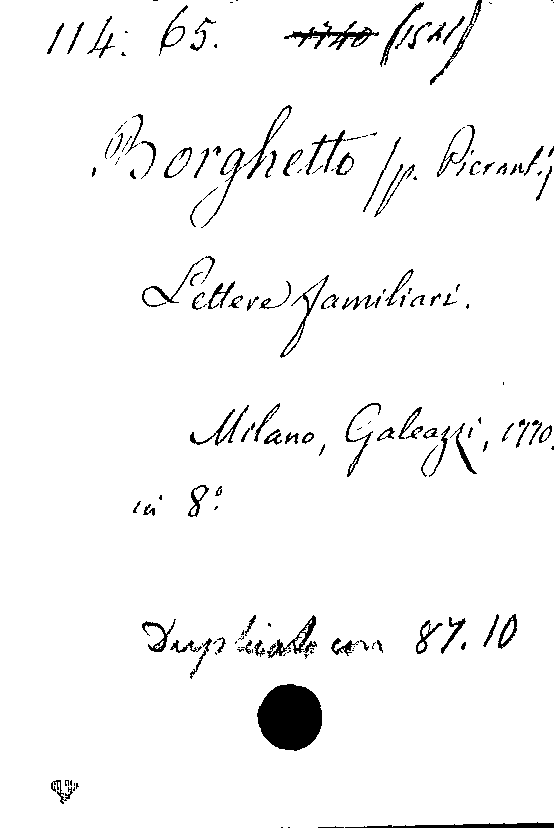 114. 65. 1740 (1521)
Borghetto /p. Pierant./
Lettere familiari.
Milano, Galeazzi, 1770.
in 8º
Duplicato con 87.10